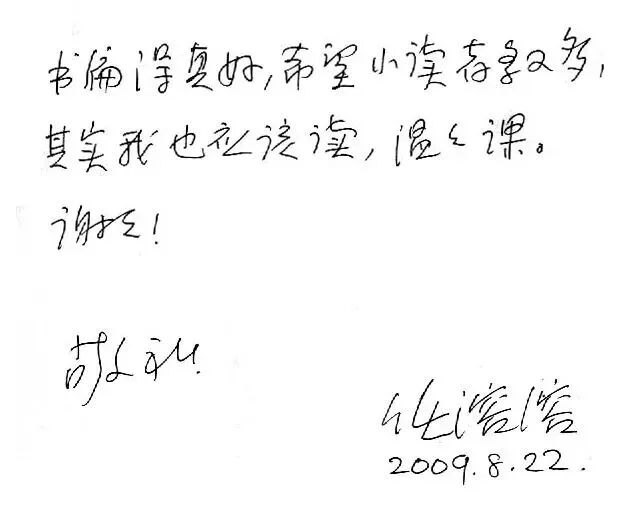 书编得真好,希望小读者多又多,
其实我也应该读,温温课。
谢谢!
敬礼
任溶溶
2009.8.22.